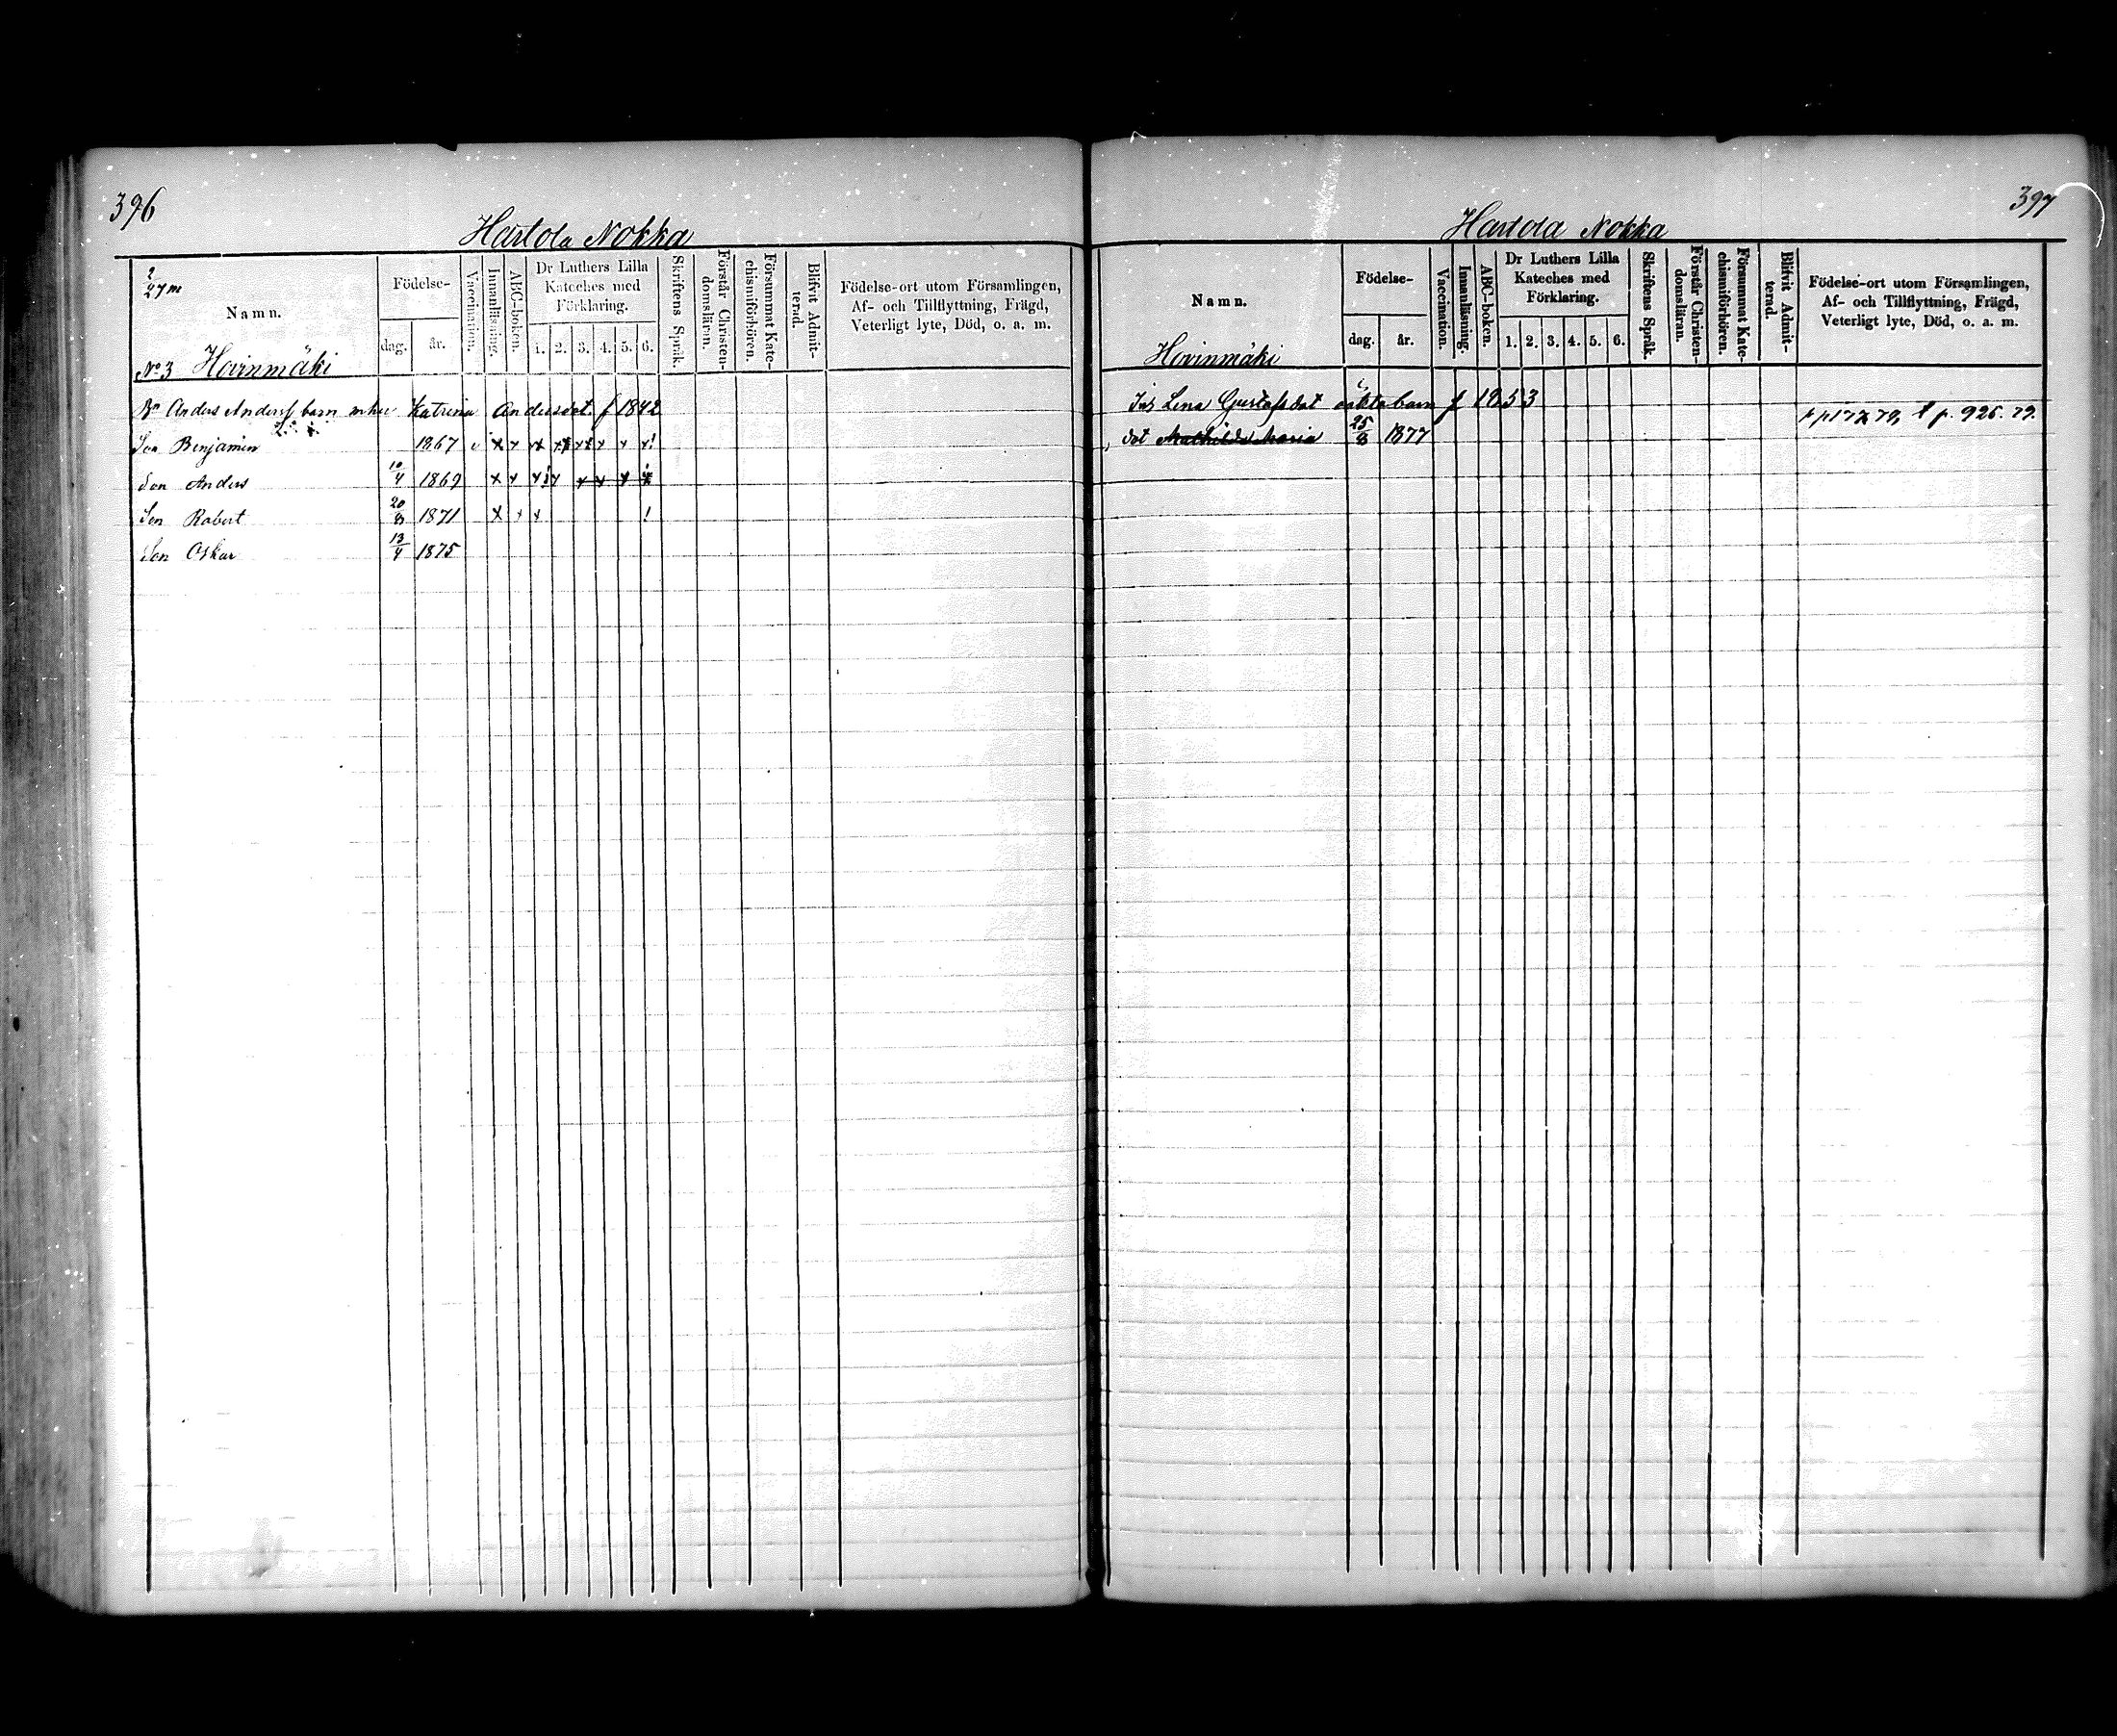 396
Hartola Nokka
2/27 m
Namn.
Födelse-
dag.
år.
Vaccination.
Innanläsning.
ABC-boken.
Dr Luthers Lilla
Kateches med
Förklaring.
1. 2. 3. 4. 5. 6.
Skriftens Språk.
Förstår Christen-
domsläran.
Försummat Kate-
chismiförhören.
Blifvit Admit-
terad.
Födelse-ort utom Församlingen,
Af- och Tillflyttning, Frägd,
Veterligt lyte, Död, o. a. m.
No 3 Hovinmäki
Bn Anders Anderss barn m hu Katrina Andersdot. f 1842
Son Benjamin 1867 v x x x x x x x x x !
Son Anders 10/4 1869 x x x ! x x x x x
Son Robert 20/8 1871 x x x !
Son Oskar 13/4 1875
397
Hartola Nokka
Namn.
Födelse-
dag.
år.
Vaccination.
Innanläsning.
ABC-boken.
Dr Luthers Lilla
Kateches med
Förklaring.
1. 2. 3. 4. 5. 6.
Skriftens Språk.
Förstår Christen-
domsläran.
Försummat Kate-
chismiförhören.
Blifvit Admit-
terad.
Födelse-ort utom Församlingen,
Af- och Tillflyttning, Frägd,
Veterligt lyte, Död, o. a. m.
Hovinmäki
Inh Lena Gustafsdot oäkta barn f 1853
dot Mathilda Maria 25/8 1877 p 177 79, l p. 926. 79.